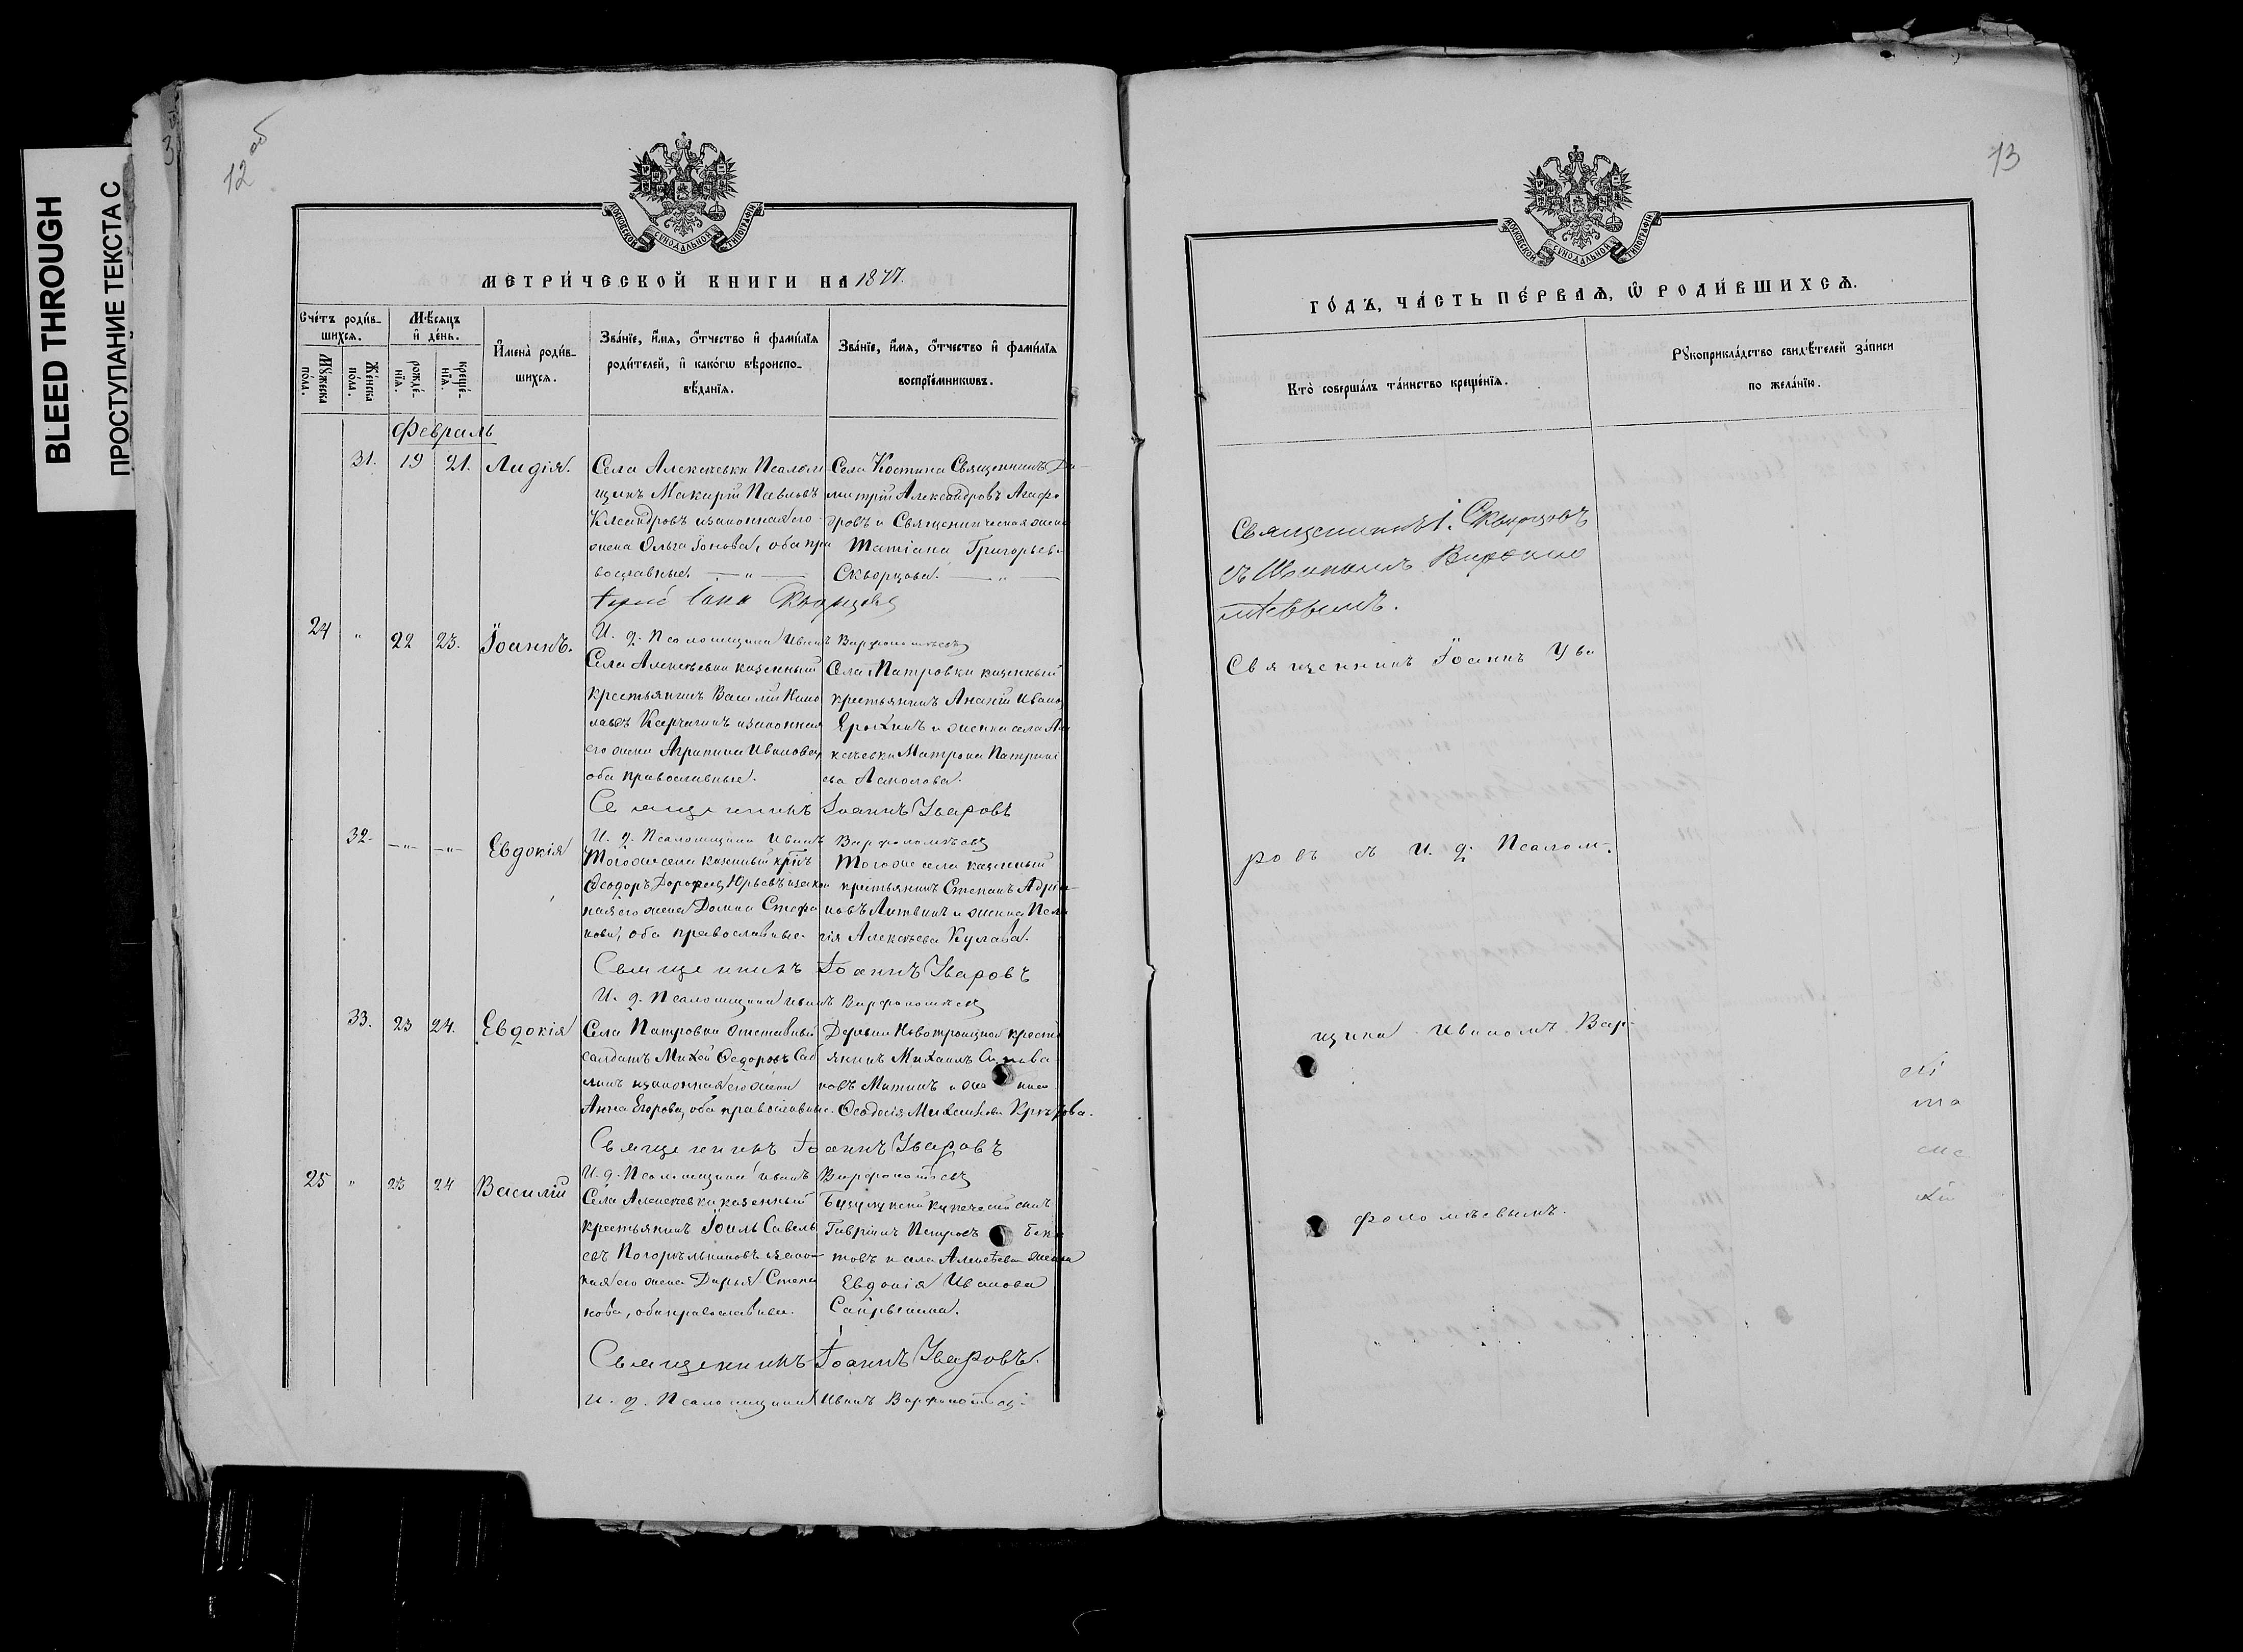 BLEED THROUGH
ПРОСТУПАНИЕ ТЕКСТА С
12 об
МОСКОВСКОЙ СУНОДАЛЬНОЙ ТИПОГРАФІИ
МЕТРИ́ЧЕСКОЙ КНИГИ НА 1877.
Сче́тъ роди́в-
шихсѧ.
Мѣ́сѧцъ
и҆ де́нь.
Мꙋ́жеска
по́ла.
Же́нска
по́ла.
рожде́-
нїѧ.
креще́-
нїѧ.
И҆мена̀ роди́в-
шихсѧ.
Зва́нїе, и҆́мѧ, ѻ҆́тчество и҆ фами́лїѧ
роди́телей, и҆ како́гѡ вѣроиспо-
вѣ́данїѧ.
Зва́нїе, и҆́мѧ, ѻ҆́тчество и҆ фами́лїѧ
воспрїе́мникѡвъ.
Февраль
31. 19 21. Лидія.
Села Алексѣевки Псалом
щикъ Макарій Павловъ
изаконная его
жена Ольга Іонова, оба пра
вославные.
Села Костина Священникъ Ди-
митрій Александровъ Агафо
и Священническая жена
Татіана Григорьева
Скворцова.
24 " 22 23. Іоаннъ.
И. д. Псаломщика Иванъ Варфоломѣевъ
Села Алексѣевки казенный
крестьянинъ Василій Нико
лаевъ Карчагинъ изаконная
его жена Агрипина Иванова,
оба православные.
Села Патровки казенный
крестьянинъ Ананій Иванов
Ерохинъ и женка села Але
ксѣевки Матрона Патрикі
ева Асмолова.
Священникъ Іоаннъ Уваровъ
32. -"- -"- Евдокія
И. д. Псаломщика Иванъ Варфоломѣевъ
Тогоже села казенный крнъ
Ѳеодоръ Дорофеев Юрьевъ изакон
ная его жена Домна Стефа
нова, оба православные.
Тогоже села казенный
крестьянинъ Степанъ Адріа-
новъ Литвинъ и женка Пела
гія Алексѣева Кулаева.
Священникъ Іоаннъ Уваровъ
И. д. Псаломщика Иванъ Варфоломѣевъ
33. 23 24. Евдокія
Села Патровки отставный
салдатъ Михей Ѳедоровъ
изаконная его жена
Анна Егорова, оба православные.
Деревни Новотроицкой кресть
янинъ Михаилъ
новъ Митинъ и
Ѳеодосія Михайлова
Священникъ Іоаннъ Уваровъ
25 " 23 24 Василій
И. д. Псаломщика Иванъ Варфоломѣевъ
Села Алексѣевки казенный
крестьянинъ Іоиль Савель
евъ Погорѣльниковъ изакон-
ная его жена Дарья Степа
нова, оба православные.
Бузулукскій купеческій сынъ
Гавріилъ Петровъ
и села Алексѣевки женка
Евдокія Иванова
Сапрыкина.
Священникъ Іоаннъ Уваровъ.
И. д. Псаломщика Иванъ Варфоломѣевъ
13
МОСКОВСКОЙ СУНОДАЛЬНОЙ ТИПОГРАФІИ
ГО́ДЪ, ЧА́СТЬ ПЕ́РВАѦ, Ѡ҆ РОДИ́ВШИХСѦ.
Кто̀ соверша́лъ та́инство креще́нїѧ.
Рꙋкоприкла́дство свидѣ́телей за́писи
по жела́нїю.
Священникъ І. Скворцовъ
съ Иваномъ Варфоло
мѣевымъ.
Священникъ Іоаннъ Ува
ровъ съ И. д. Псалом-
щика Иваномъ Вар-
фоломѣевымъ.